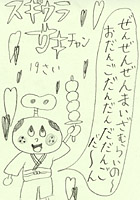 スギウラ
サチエチャン
19さい
ぜんぜんぜんまいごきもちいいの〜
おだんごだんだんだだだんご
だ〜ん